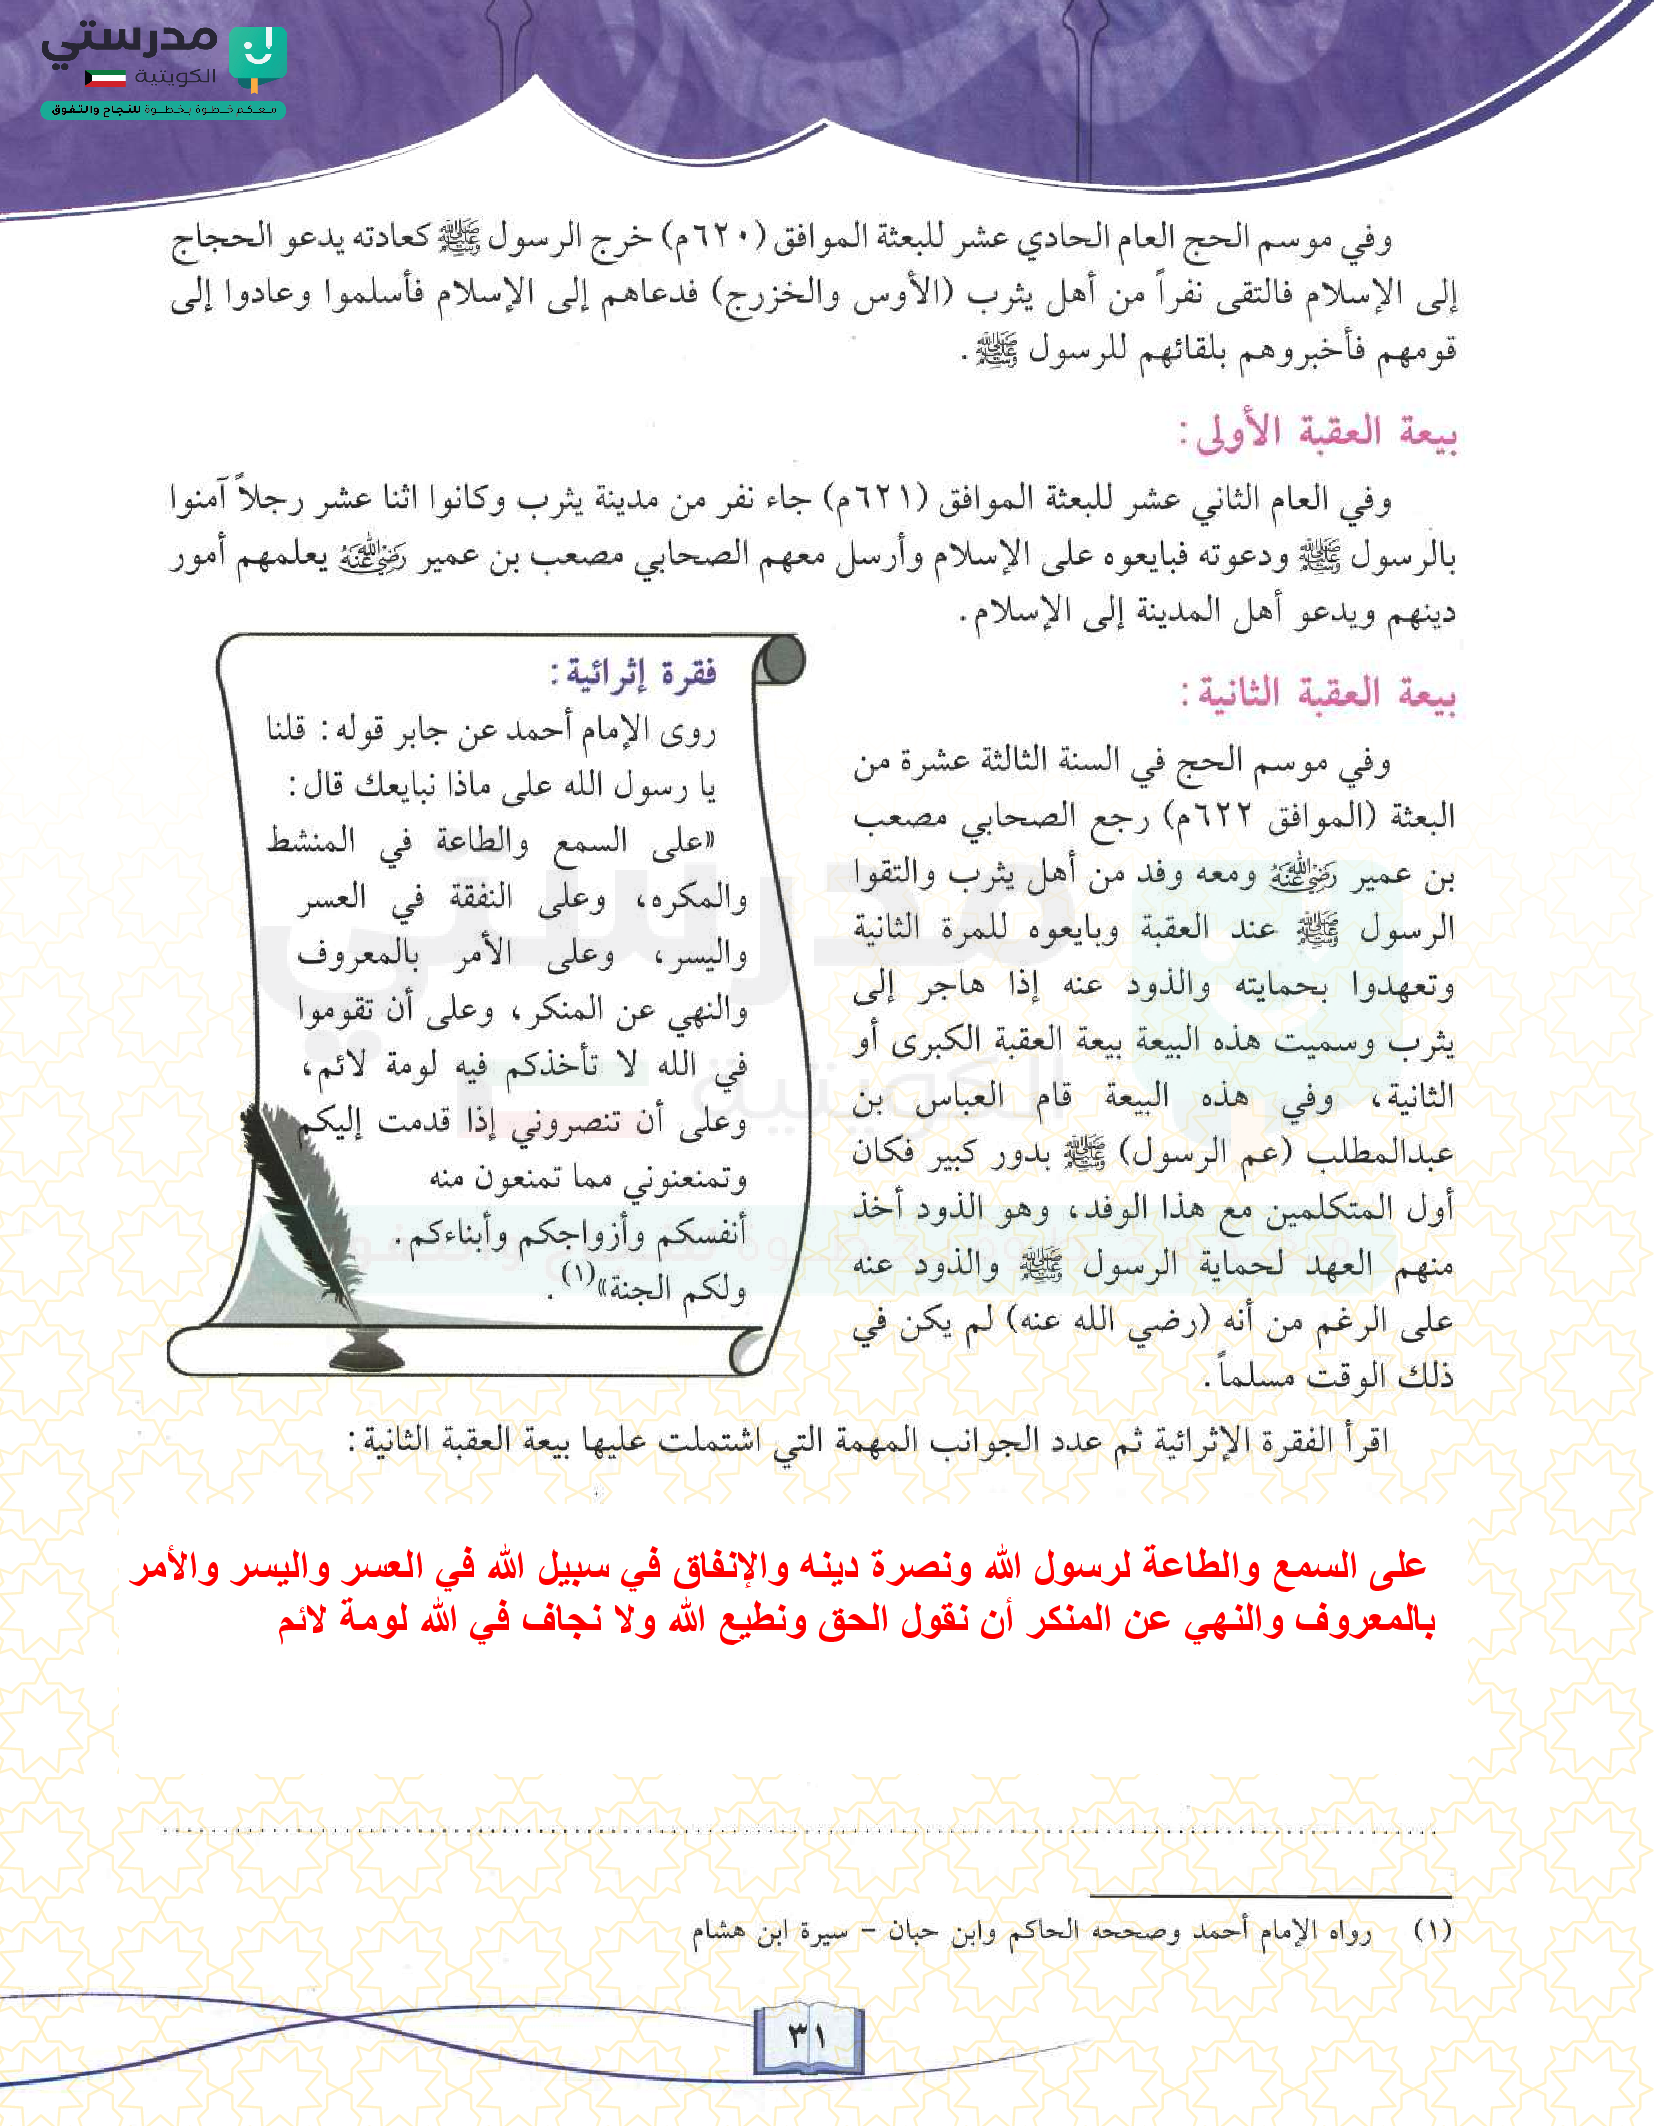 مدرستي
الكويتية
معكم خطوة بخطوة للنجاح والتفوق
وفي موسم الحج العام الحادي عشر للبعثة الموافق (٦٢٠م) خرج الرسول ﷺ كعادته يدعو الحجاج
إلى الإسلام فالتقى نفراً من أهل يثرب (الأوس والخزرج) فدعاهم إلى الإسلام فأسلموا وعادوا إلى
قومهم فأخبروهم بلقائهم للرسول ﷺ.
بيعة العقبة الأولى:
وفي العام الثاني عشر للبعثة الموافق (٦٢١م) جاء نفر من مدينة يثرب وكانوا اثنا عشر رجلاً آمنوا
بالرسول ﷺ ودعوته فبايعوه على الإسلام وأرسل معهم الصحابي مصعب بن عمير رضي الله عنه يعلمهم أمور
دينهم ويدعو أهل المدينة إلى الإسلام.
بيعة العقبة الثانية:
وفي موسم الحج في السنة الثالثة عشرة من
البعثة (الموافق ٦٢٢م) رجع الصحابي مصعب
بن عمير رضي الله عنه ومعه وفد من أهل يثرب والتقوا
الرسول ﷺ عند العقبة وبايعوه للمرة الثانية
وتعهدوا بحمايته والذود عنه إذا هاجر إلى
يثرب وسميت هذه البيعة بيعة العقبة الكبرى أو
الثانية، وفي هذه البيعة قام العباس بن
عبدالمطلب (عم الرسول) ﷺ بدور كبير فكان
أول المتكلمين مع هذا الوفد، وهو الذود أخذ
منهم العهد لحماية الرسول ﷺ والذود عنه
على الرغم من أنه (رضي الله عنه) لم يكن في
ذلك الوقت مسلماً.
فقرة إثرائية:
روى الإمام أحمد عن جابر قوله: قلنا
يا رسول الله على ماذا نبايعك قال:
«على السمع والطاعة في المنشط
والمكره، وعلى النفقة في العسر
واليسر، وعلى الأمر بالمعروف
والنهي عن المنكر، وعلى أن تقوموا
في الله لا تأخذكم فيه لومة لائم،
وعلى أن تنصروني إذا قدمت إليكم
وتمنعنوني مما تمنعون منه
أنفسكم وأزواجكم وأبناءكم.
ولكم الجنة»(١).
اقرأ الفقرة الإثرائية ثم عدد الجوانب المهمة التي اشتملت عليها بيعة العقبة الثانية:
على السمع والطاعة لرسول الله ونصرة دينه والإنفاق في سبيل الله في العسر واليسر والأمر
بالمعروف والنهي عن المنكر أن نقول الحق ونطيع الله ولا نجاف في الله لومة لائم
(١) رواه الإمام أحمد وصححه الحاكم وابن حبان - سيرة ابن هشام
٣١